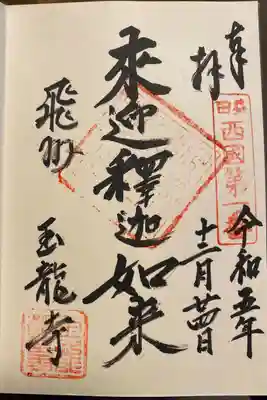 奉拝
西國第一番
令和五年
十二月廿四日
来迎釋迦如来
飛州
玉龍寺